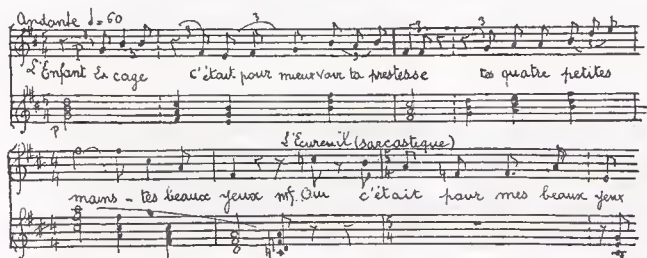 Andante ♩=60
L'Enfant La cage c'était pour mieux voir ta prestesse tes quatre petites
p
L'Ecureuil (sarcastique)
mains - tes beaux yeux mf. Oui c'était pour mes beaux yeux